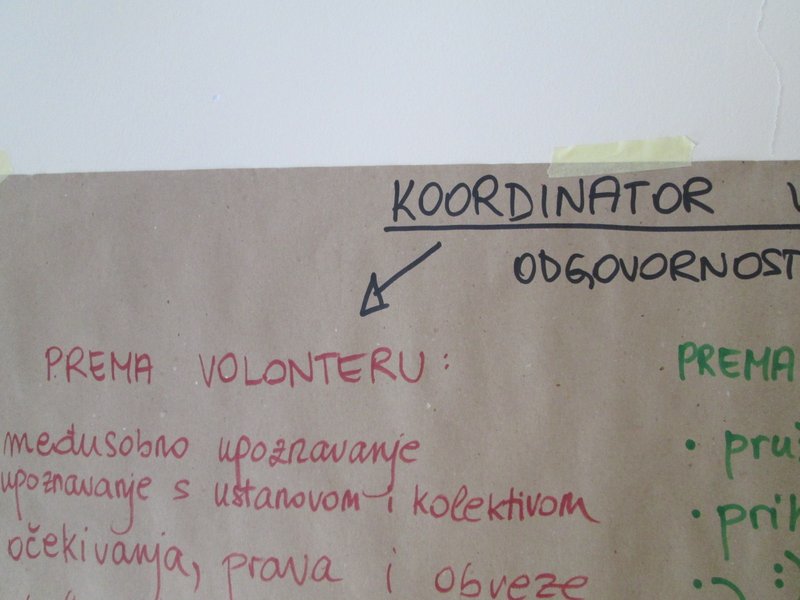 KOORDINATOR
ODGOVORNOST
PREMA VOLONTERU:
međusobno upoznavanje
upoznavanje s ustanovom i kolektivom
očekivanja, prava i obveze
PREMA
• pruž
• prih